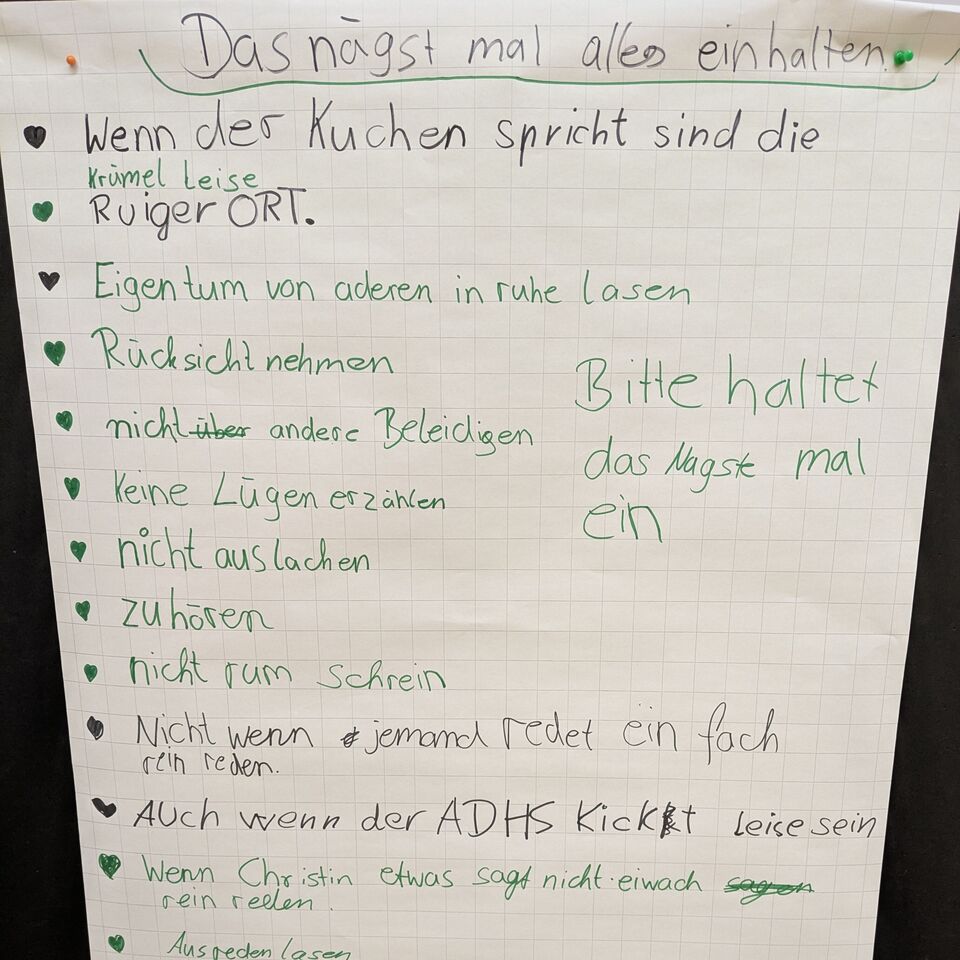 Das nägst mal alles einhalten.
Wenn der Kuchen spricht sind die
Krümel leise
Ruiger ORT.
Eigentum von aderen in ruhe lasen
Rücksicht nehmen
nicht über andere Beleidigen
keine Lügen erzählen
nicht auslachen
zuhören
nicht rum schrein
Nicht wenn jemand redet ein fach
rein reden.
Auch wenn der ADHS Kickt leise sein
Wenn Christin etwas sagt nicht eiwach sagen
rein reden.
Ausreden lasen
Bitte haltet
das Nagste mal
ein